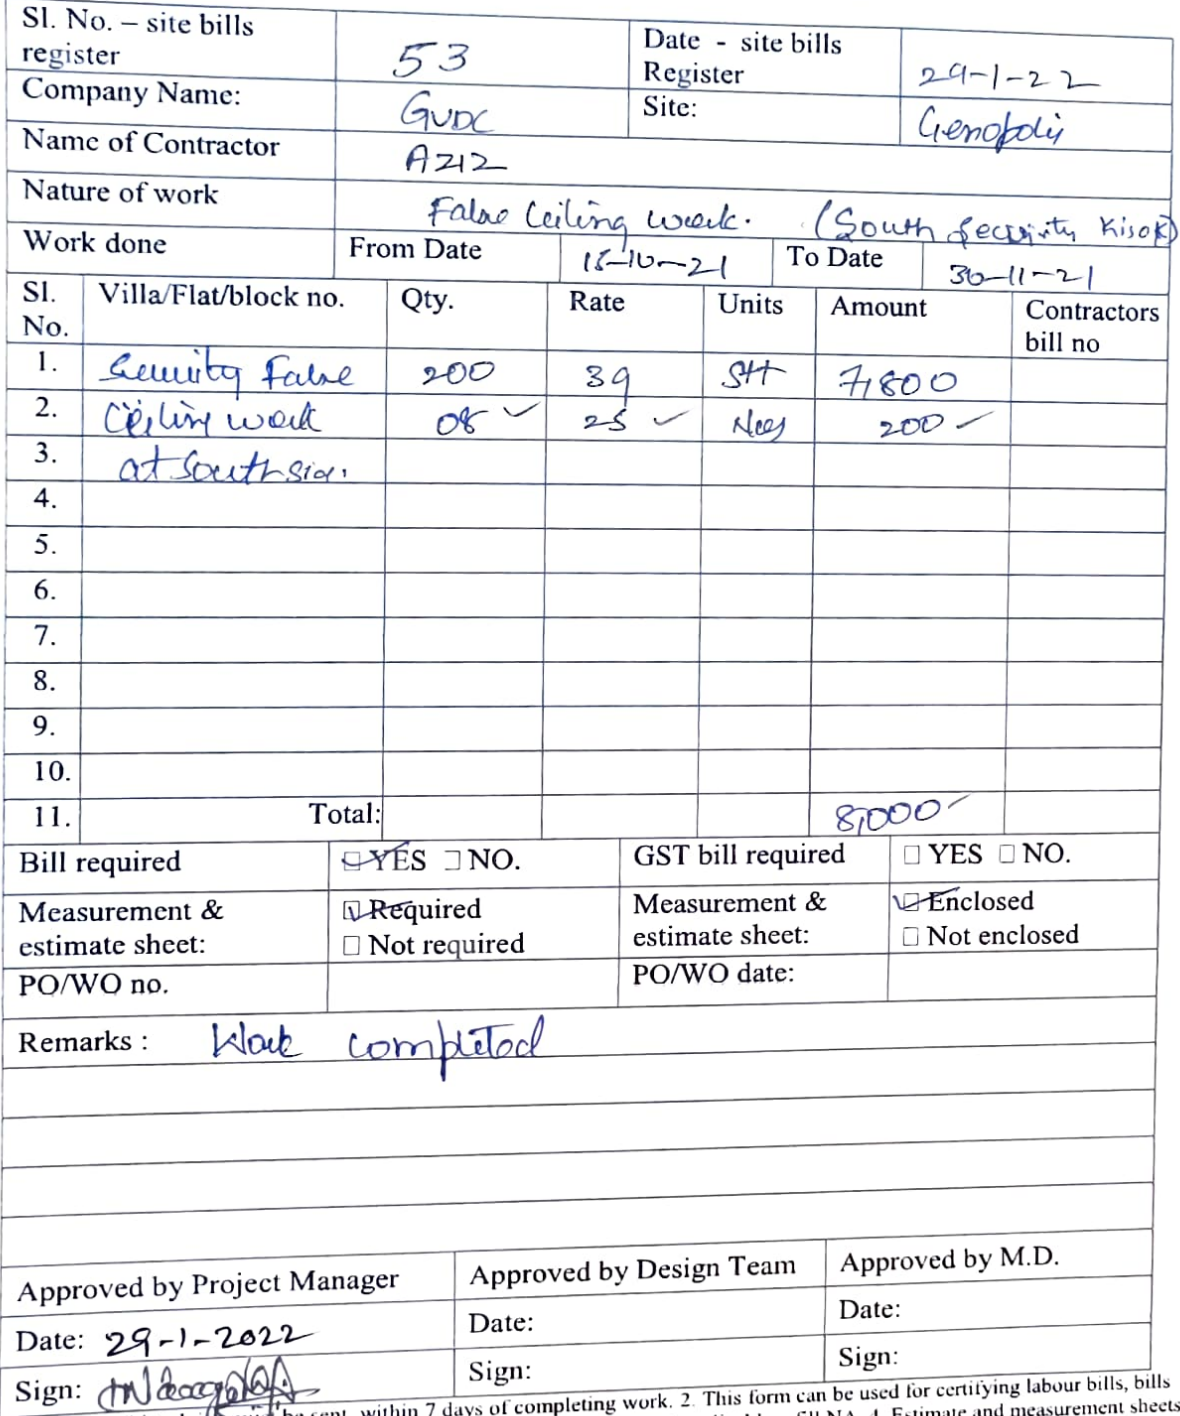 Sl. No. – site bills register 53 Date - site bills Register 29-1-22
Company Name: GVDC Site: Genopolis
Name of Contractor AZIZ
Nature of work False Ceiling work. (South Security Kisok)
Work done From Date 15-10-21 To Date 30-11-21
Sl. No. Villa/Flat/block no. Qty. Rate Units Amount Contractors bill no
1. Security False 200 39 Sft 7,800
2. Ceiling work 08 25 Nos 200
3. at South side.
4.
5.
6.
7.
8.
9.
10.
11. Total: 8,000
Bill required YES NO. GST bill required YES NO.
Measurement & estimate sheet: Required Not required Measurement & estimate sheet: Enclosed Not enclosed
PO/WO no. PO/WO date:
Remarks : Work completed
Approved by Project Manager Approved by Design Team Approved by M.D.
Date: 29-1-2022 Date: Date:
Sign: Sign: Sign:
within 7 days of completing work. 2. This form can be used for certifying labour bills, bills
4. Estimate and measurement sheets